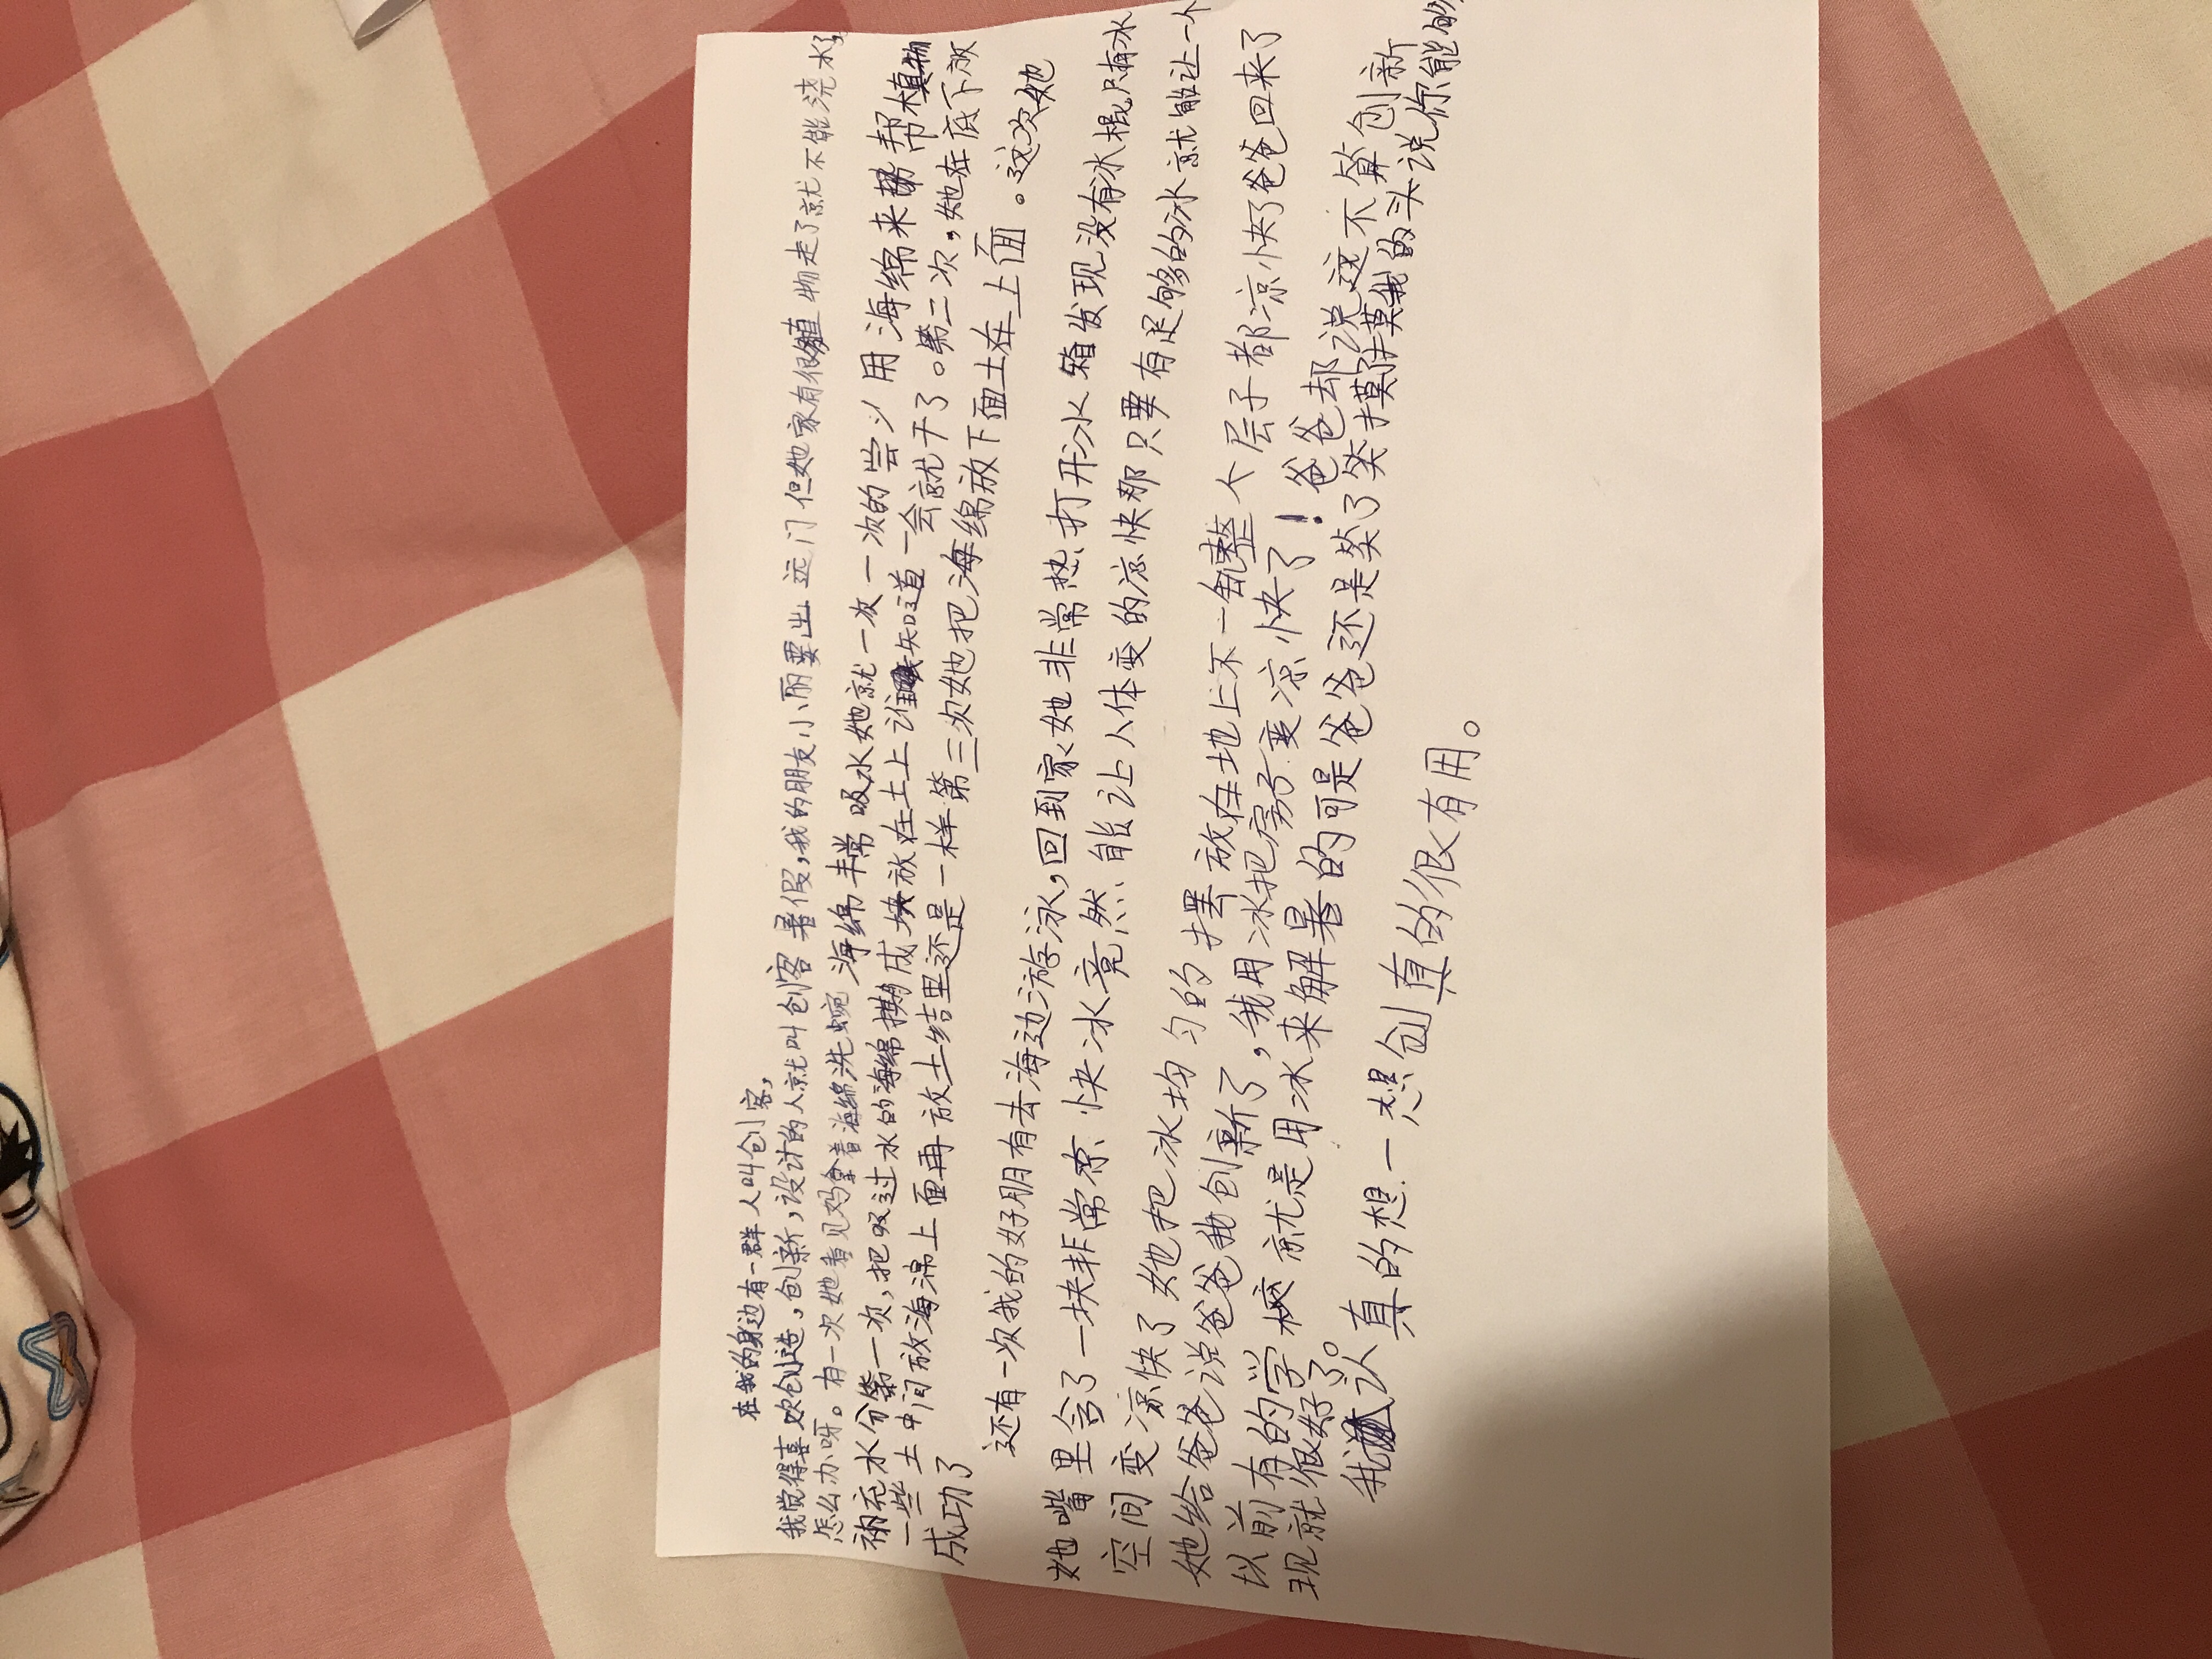 在我的身边有一群人叫创客,
我觉得喜欢创造,创新,设计的人就叫创客暑假,我的朋友小丽要出远门但她家有很植物走了就不能浇水了,
怎么办呀。有一次她看见妈拿着海绵洗碗海绵非常吸水她就一次一次的尝义用海绵来帮帮植物
补充水分第一次,把吸过水的海绵掰成块放在土上谁知道一会就干了。第二次,她在底下放
一些土中间放海绵上面再放土结里还是一样第三次她把海绵放下面土在上面。这次她
成功了
还有一次我的好朋有去海边游泳,回到家她非常热打开冰箱发现没有冰棍只有冰
她嘴里含了一块非常凉快冰竟然能让人体变的凉快那只要有足够的冰就能让一个
空间变凉快了她把冰均匀的摆放在地上不一会整个层子都凉快了爸爸回来了
她给爸爸说爸爸我创新了,我用冰把房子变凉快了!爸爸却说这不算创新
以前有的学校就是用冰来解暑的可是爸爸还是笑了笑摸摸我的头说你能够
现就很好了。
我认真的想一想创真的很有用。